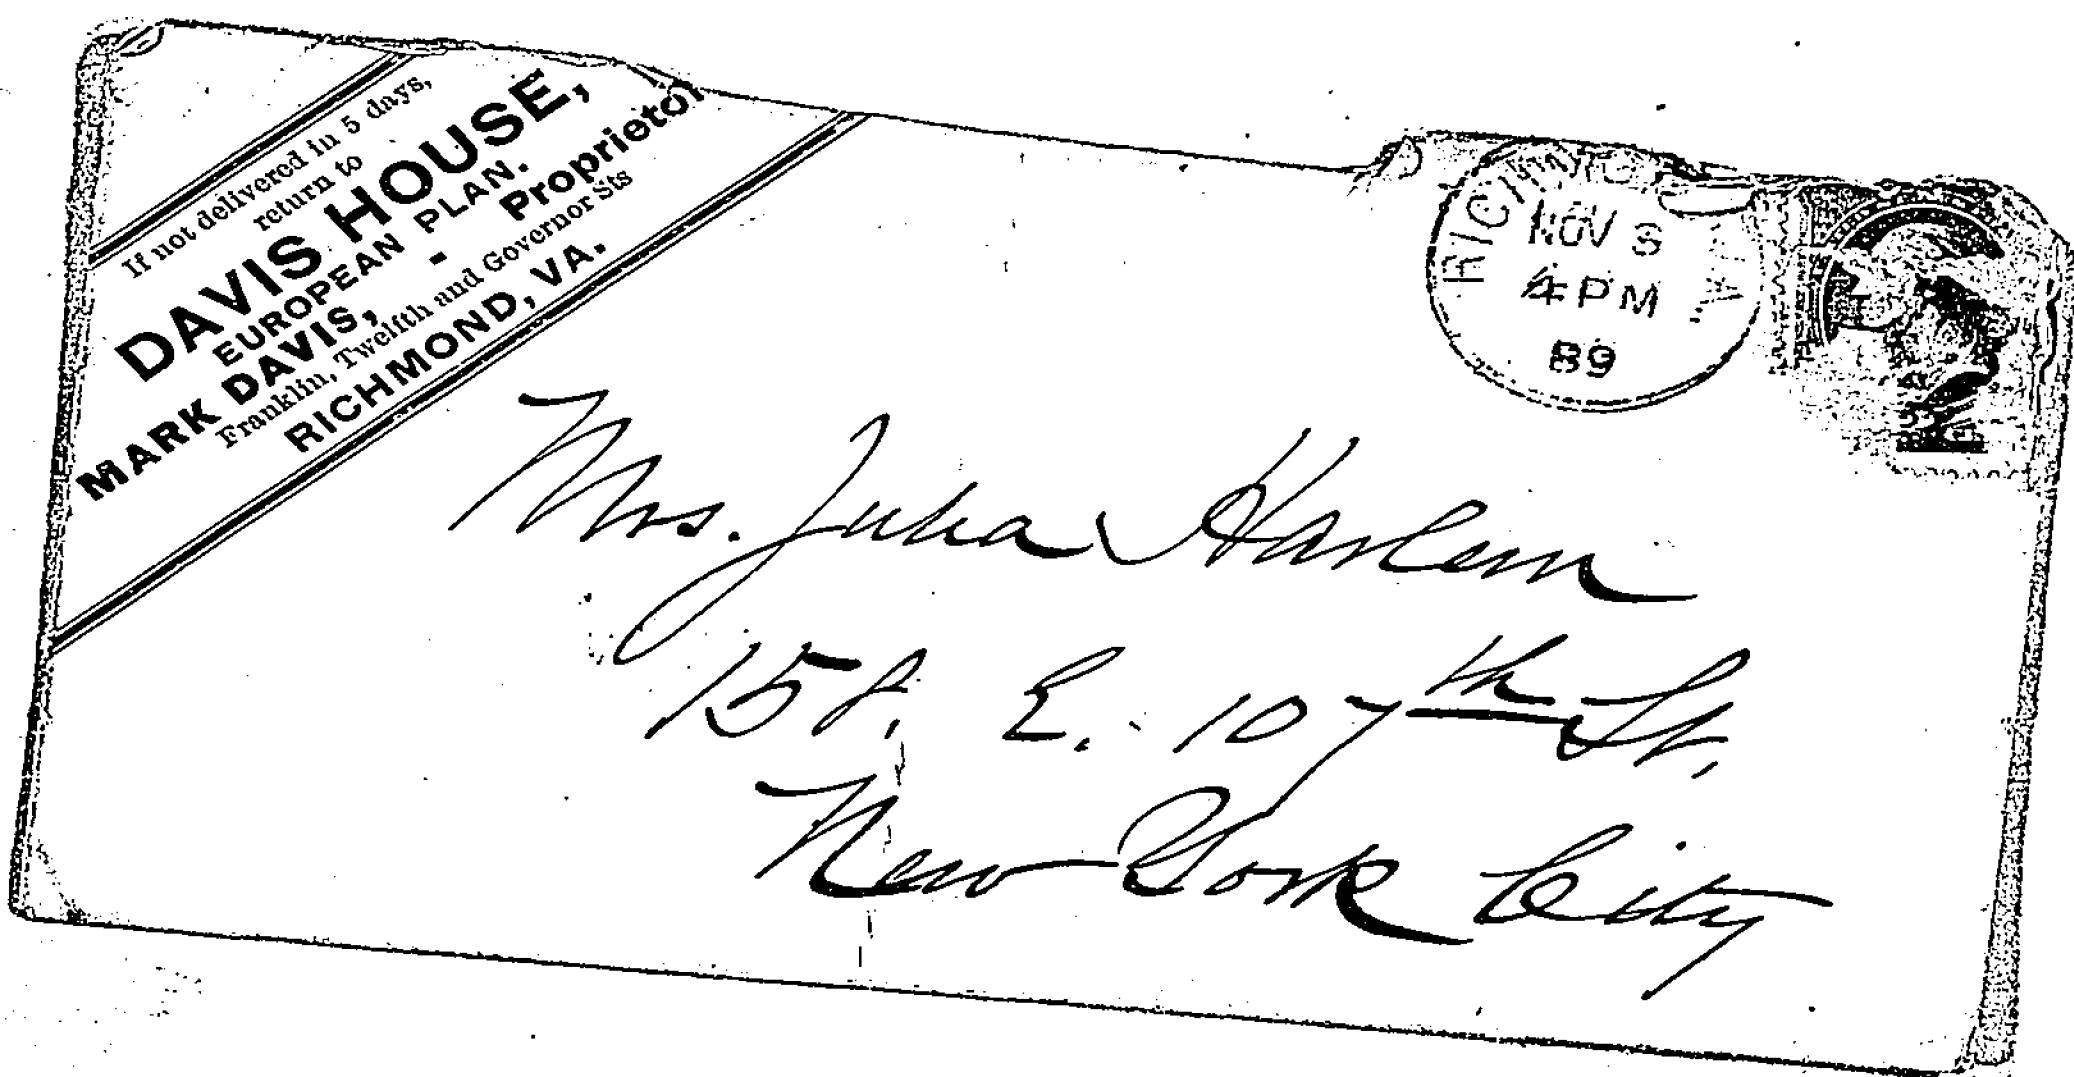 If not delivered in 5 days,
return to
DAVIS HOUSE,
EUROPEAN PLAN.
MARK DAVIS, - Proprietor
Franklin, Twelfth and Governor Sts
RICHMOND, VA.
NOV
4 PM
89
Mrs. Julia Harlem
158, E. 107th St.
New York City